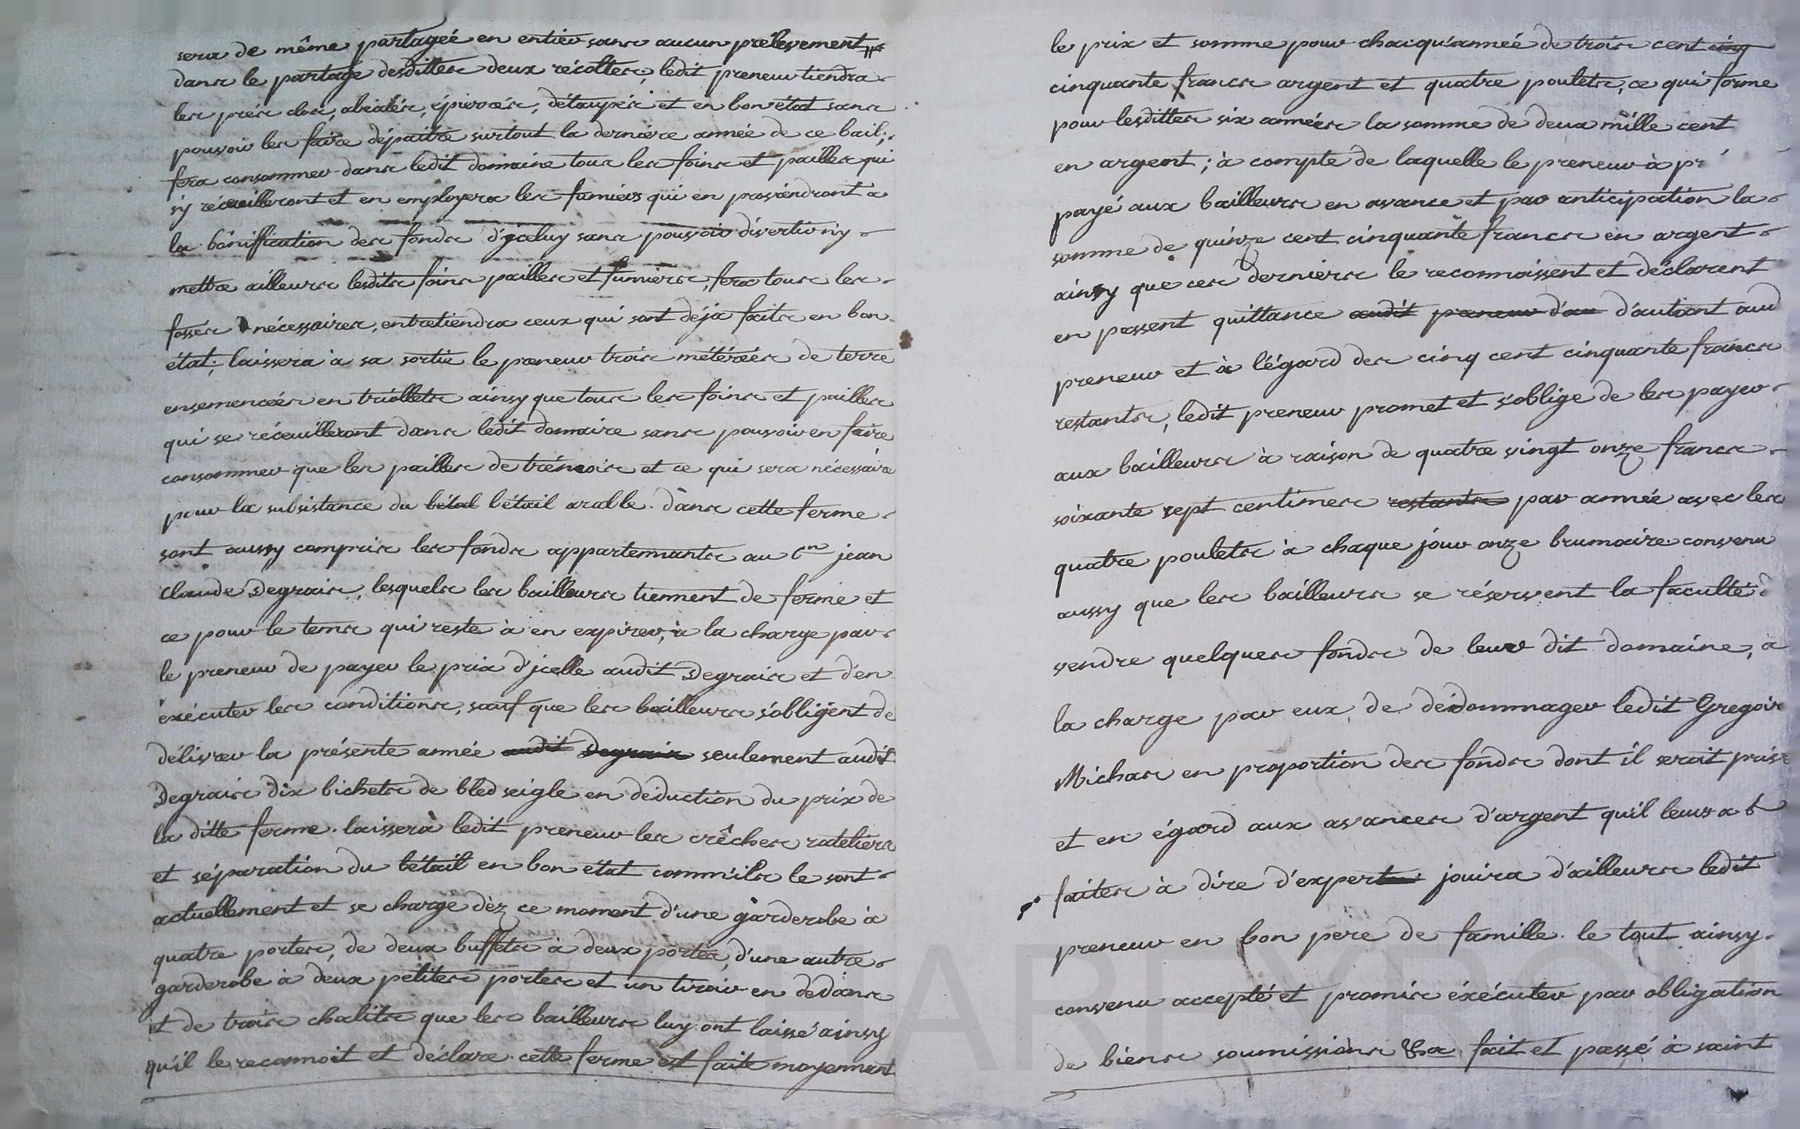 sera de même partagée en entier sans aucun prélevement
dans le partage desdittes deux récoltes, ledit preneur tiendra
les prés clos, abéalés, épierrés, détaupés et en bon état sans
pouvoir les faire dépaitre surtout la derniere année de ce bail;
fera consommer dans ledit domaine tous les foins et pailles qui
s'y réceuilleront et en employera les fumiers qui en proviendront a
la bonification des fonds d'yceluy sans pouvoir divertir ny
mettre ailleurs lesdits foins pailles et fumiers, fera tous les
fosses nécessaires, entretiendra ceux qui sont déja faits en bon
état; laissera à sa sortie le preneur trois métérées de terre
ensemencées en triollets ainsy que tous les foins et pailles
qui se réceuilleront dans ledit domaine sans pouvoir en faire
consommer que les pailles de trémois et ce qui sera nécessaire
pour la subsistance du bétal bétail arable. dans cette ferme
sont aussy compris les fonds appartennants au Cen jean
Claude Degrais, lesquels les bailleurs tiennent de ferme et
ce pour le tems qui reste à en expirer, à la charge par
le preneur de payer le prix d'jcelle audit Degrais et d'en
éxécuter les conditions, sauf que les bailleurs s'obligent de
délivrer la présente année audit Degrais seulement audit
Degrais dix bichets de bled seigle en déduction du prix de
la ditte ferme. laissera ledit preneur les crêches rateliers
et séparation du bétail en bon état comm'ils le sont
actuellement et se charge dèz ce moment d'une garderobe à
quatre portes, de deux buffets à deux portes, d'une autre
garderobe à deux petites portes et un tiroir en dedans
et de trois chalits que les bailleurs luy ont laissé ainsy
qu'il le reconnoit et déclare. cette ferme est faite moyennant
le prix et somme pour chacqu'année de trois cent cinq
cinquante francs argent et quatre poulets, ce qui forme
pour lesdittes six années la somme de deux mille cent
en argent; à compte de laquelle le preneur à
payé aux bailleurs en avance et par anticipation la
somme de quinze cent cinquante francs en argent
ainsy que ces derniers le reconnoissent et déclarent
en passent quittance audit preneur d'au d'autant aud
preneur et à l'égard des cinq cent cinquante francs
restants, ledit preneur promet et s'oblige de les payer
aux bailleurs à raison de quatre vingt onze francs
soixante sept centimes restants par année avec les
quatre poulets à chaque jour onze brumaire convenu
aussy que les bailleurs se réservent la faculté d
vendre quelques fonds de leur dit domaine, a
la charge par eux de dédommager ledit Gregoir
Michas en proportion des fonds dont il seroit privé
et en égard aux avances d'argent qu'il leurs a
faites à dire d'experts jouira d'ailleurs ledit
preneur en bon pere de famille. le tout ainsy
convenu accepté et promis éxécuter par obligation
de biens soumissions &a fait et passé à saint